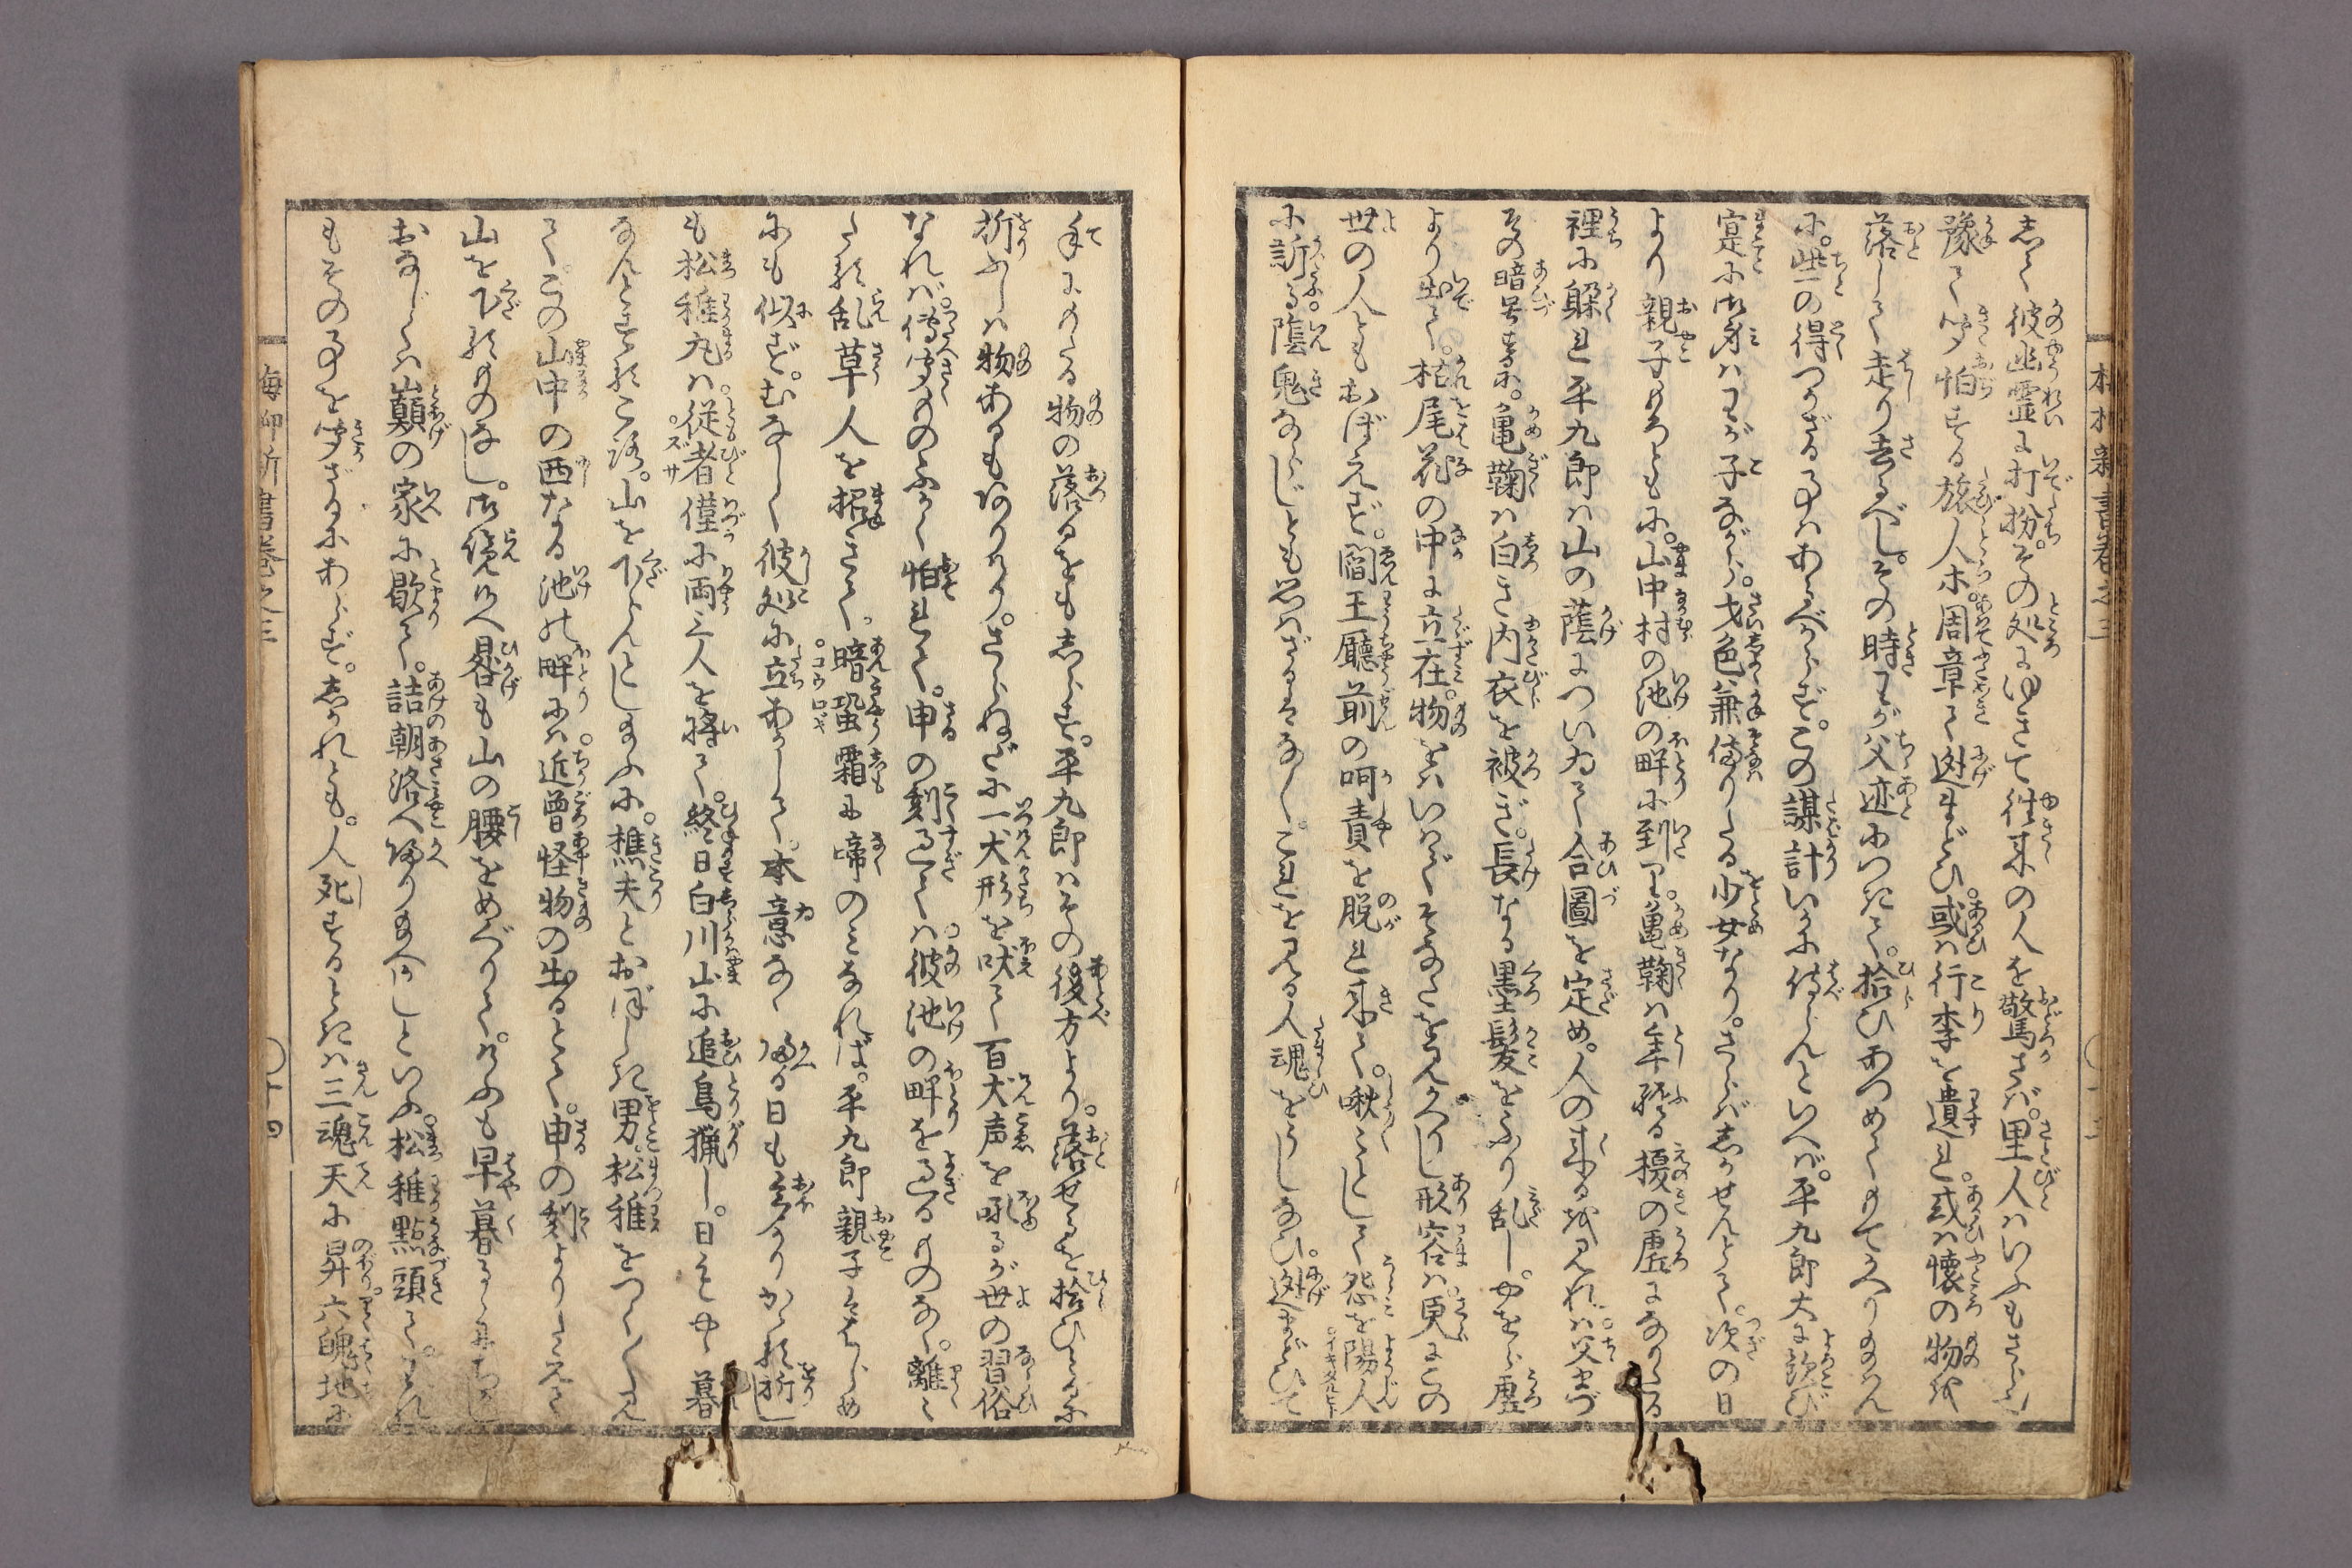 志て彼幽霊に打扮。その処にゆきて徃来の人を驚さバ。里人ハいふもさら也
豫て聞怕ずる旅人ホ。周章て迯まどひ。或ハ行李を遺れ。或ハ懐の物を
落して走り去るべし。その時わが父迹につきて。拾ひあつめてもてかへり給はん
に。些の得つかざる事ハあるべからず。この謀計いかに侍らんといへバ。平九郎大に歓び
寔に御身ハわが子ながら。才色兼備りたる少女なり。さらバ志かせんとて。次の日
より親子もろともに。山中村の池の畔に到り。亀鞠ハ年経る榎の虚になりたる
裡に躱れ平九郎ハ山の蔭についゐて合圖を定め。人の来るを見れバ。父まづ
その暗号すに。亀鞠ハ白き内衣を被ぎ。長なる黒髪をふり乱し。やをら虚
より出て。枯尾花の中に立在。物をバいはでそなたを見かへりし形容ハ。更にこの
世の人ともおぼえず。閻王廳前の呵責を脱れ来て。啾々として怨を陽人
に訴る。陰鬼ならじとも思ハざるはなく。これを見る人魂をうしなひ。迯まどひて
手にもたる物の落るをも志らず。平九郎ハその後方より。落せるを拾ひとるに
折ふしハ物あるもありけり。さらぬだに一犬形を吠て百犬声を吼るが世の習俗
なれバ。傳聞ものふかく怕れて。申の刻過てハ。彼池の畔を過るものなく。離々
たる乱草人を招きて。暗蛩霜に啼のみなれば。平九郎親子ははじめ
にも似ず。むなしく彼処に立あかして。本意なく帰る日も多かりかゝる折し
も松稚丸ハ。従者僅に両三人を将て。終日白川山に追鳥猟し。日もやゝ暮
なんとする比。山を下らんとし給ふに。樵夫とおぼしき男。松稚をつく〴〵見
て。この山中の西なる池の畔にハ。近曽怪物の出るとて。申の刻よりたえて
山を下るものなし。御覧候へ晷も山の腰をめぐりて。けふも早暮るゝにちかし
おなじくハ巔の家に歇て。詰朝洛へ帰り給へかしといふ。松稚點頭て。われ
もその事を聞ざるにあらず。志かれども。人死するときハ三魂天に昇り。六魄地に
梅柳新書巻之三
十四